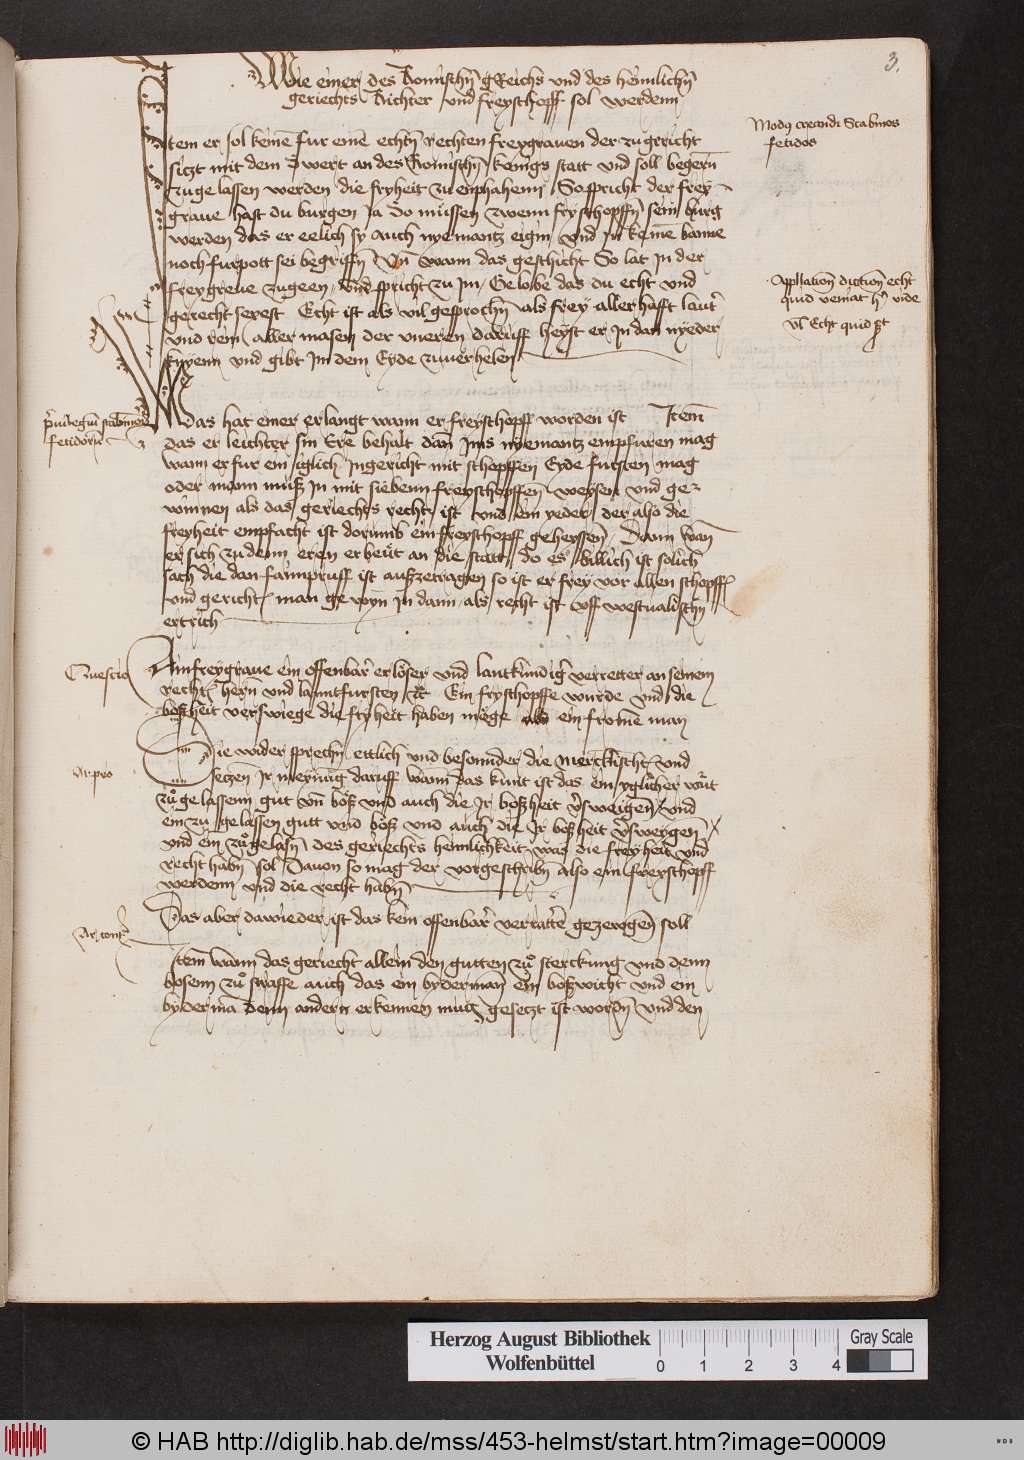 3.
Wie einer des Romischn Reichs und des heimlichn
geriechts Richter und freyschopff sol werdenn
Modus creandi Scabinos
fetidos
Item er sol keme fur eine echtn rechten freygrauen der zu gericht
siczt mit dem Swert an des Romischn kunigs statt und soll begern
zuge lassen werden die fryheit zu enphahenn So spricht der frey
graue hast du burgen Ja do müssen zwenn fryschopffn sein burg
werden das er eelich sy auch nyemantz eigin und In keine banne
noch furpott sei begriffn Un wann das geschicht So lat In der
freygreue zugeen und spricht zu Im Gelobe das du echt und
gerecht seyest Echt ist als vil gesprochn als frey aller hafft laut
und rein aller masen der uneren daruff heyst er In dan nyeder
knyenn und gibt Im dem Eyde zuuerhelen
echt
quid
vl Echt quid
Was hat einer erlangt wann er freyschopff worden ist Item
das er leichter sin Ere behalt dan Ims nyemantz empfuren mag
wann er fur ein iglich Ingericht mit schopffen Eyde fursten mag
oder mann muß In mit siebenn freyschopffen weysen und ge
winnen als das geriechts recht ist und ein yeder der also die
freyheit empfacht ist dorumb ein freyschopff geheyssen Dann wan
er sich zu denn eren erbeut an die statt do es billich ist solich
sach die dan faimpruff ist außzetragen so ist er frey vor allen schopff
und gericht man ge wyn In dann als recht ist uff westualischn
ertrich
fetidorum
Questio
Ain freygraue ein offenbar erlöser und lantkundig verretter an seinem
recht hern und lanntfursten Ein fryschopffe wurde und die
boßheit verswiege die fryheit haben möge als ein frome man
Ar pro
Die wider sprechn ettlich und besonnder die merckischt und
setzen Ir meynung daruff wann das kunt ist das ein yglicher wurt
zugelassenn gut un böß und auch die Ir boßheit vsweigen und
ein zu gelassen gutt und böß und auch die Ir boßheit vsweygen
und ein zugelasn des geriechts heimlichkeit was die freyheit und
recht habn sol Dauon so mag der vorgeschribn also ein freyschopff
werdenn und die recht habn
Ar cont
Das aber dawieder ist das kein offenbar verratte gezewgen soll
Item wann das geriecht allein den gutten zu sterckung und denn
bosenn zu straffe auch das ein byderman ein boßwicht und ein
byderman denn andern erkennen muß gesetzt ist wordn und den
Herzog August Bibliothek
Wolfenbüttel
0 1 2 3 4
Gray Scale
© HAB http://diglib.hab.de/mss/453-helmst/start.htm?image=00009